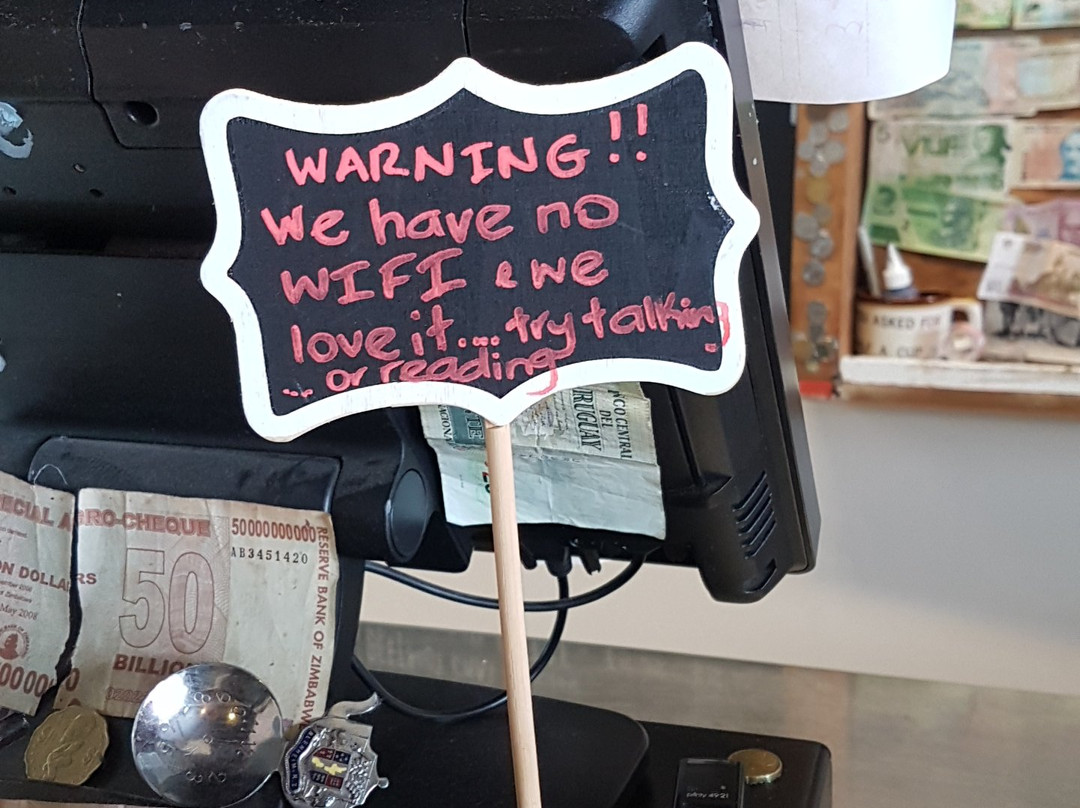 WARNING!!
We have no
WIFI & we
love it... try talking
... or reading
NCO CENTRAL
DEL
URUGUAY
ECIAL AGRO-CHEQUE
50000000000
AB3451420
50
BILLION
RESERVE BANK OF ZIMBABW
ON DOLLARS
May 2008
VIJF
5
ASKED FOR
A CUP